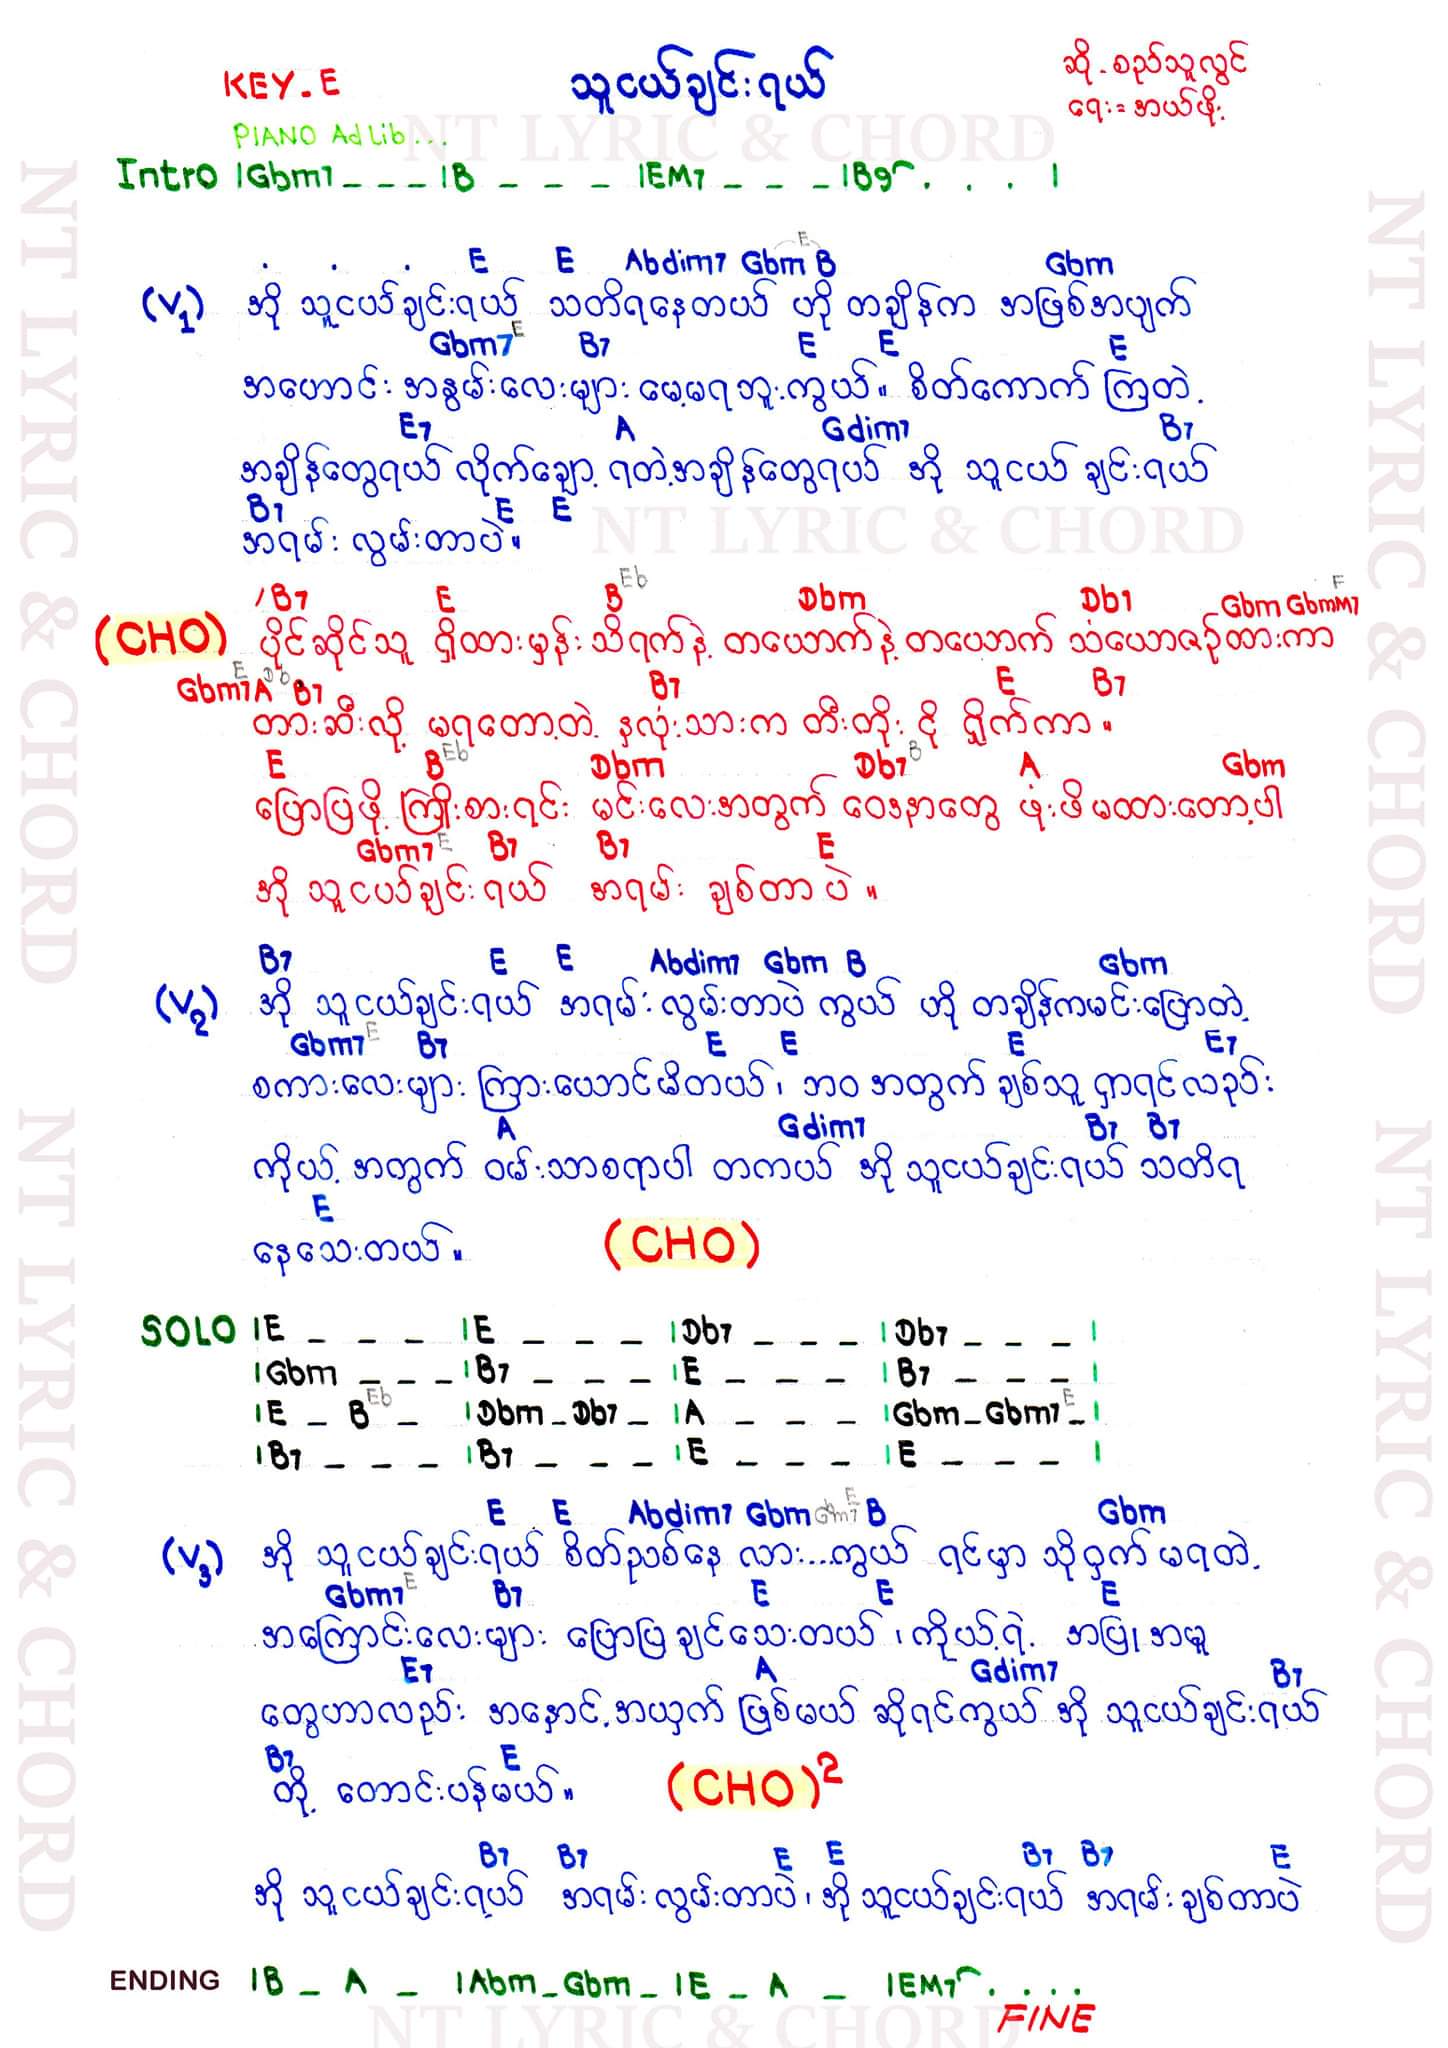 KEY - E
သူငယ်ချင်းရယ်
ဆို - စည်သူလွင်
ရေး = အယ်ဖိုး
PIANO Ad Lib...
Intro |Gbm7 _ _ _ |B _ _ _ |EM7 _ _ _ |B9 . . . |
E E Abdim7 Gbm E B Gbm
(V1) အို သူငယ်ချင်းရယ် သတိရနေတယ် ဟို တချိန်က အဖြစ်အပျက်
Gbm7 E B7 E E E
အဟောင်း အနွမ်းလေးများ မေ့မရဘူးကွယ်။ စိတ်ကောက် ကြတဲ့
E7 A Gdim7 B7
အချိန်တွေရယ် လိုက်ချော့ ရတဲ့အချိန်တွေရယ် အို သူငယ် ချင်းရယ်
B7 E E
အရမ်း လွမ်းတာပဲ။
B7 E B Eb Dbm Db7 Gbm GbmM7 F
(CHO) ပိုင်ဆိုင်သူ ရှိထားမှန်း သိရက်နဲ့ တယောက်နဲ့ တယောက် သံယောဇဉ်ထားကာ
Gbm7 E A Db B7 B7 E B7
တားဆီးလို့ မရတော့တဲ့ နှလုံးသားက တီးတိုး ငို ရှိုက်ကာ။
E B Eb Dbm Db7 B A Gbm
ပြောပြဖို့ ကြိုးစားရင်း မင်းလေးအတွက် ဝေဒနာတွေ ဖုံးဖိမထားတော့ပါ
Gbm7 E B7 B7 E
အို သူငယ်ချင်းရယ် အရမ်း ချစ်တာပဲ။
B7 E E Abdim7 Gbm B Gbm
(V2) အို သူငယ်ချင်းရယ် အရမ်းလွမ်းတာပဲ ကွယ် ဟို တချိန်ကမင်းပြောတဲ့
Gbm7 E B7 E E E E7
စကားလေးများ ကြားယောင်မိတယ်၊ ဘဝ အတွက် ချစ်သူ ရှာရင်လည်း
A Gdim7 B7 B7
ကိုယ့် အတွက် ဝမ်းသာစရာပါ တကယ် အို သူငယ်ချင်းရယ် သတိရ
E
နေသေးတယ်။ (CHO)
SOLO |E _ _ _ |E _ _ _ |Db7 _ _ _ |Db7 _ _ _ |
|Gbm _ _ _ |B7 _ _ _ |E _ _ _ |B7 _ _ _ |
|E _ B Eb _ |Dbm _ Db7 _ |A _ _ _ |Gbm _ Gbm7 E _ |
|B7 _ _ _ |B7 _ _ _ |E _ _ _ |E _ _ _ |
E E Abdim7 Gbm Gbm7 E B Gbm
(V3) အို သူငယ်ချင်းရယ် စိတ်ညစ်နေ လား...ကွယ် ရင်မှာ သိုဝှက် မရတဲ့
Gbm7 E B7 E E E
အကြောင်းလေးများ ပြောပြချင်သေးတယ်၊ ကိုယ့်ရဲ့ အပြုအမူ
E7 A Gdim7 B7
တွေဟာလည်း အနှောင့်အယှက် ဖြစ်မယ် ဆိုရင်ကွယ် အို သူငယ်ချင်းရယ်
B7 E
တို့ တောင်းပန်မယ်။ (CHO)2
B7 B7 E E B7 B7 E
အို သူငယ်ချင်းရယ် အရမ်းလွမ်းတာပဲ၊ အို သူငယ်ချင်းရယ် အရမ်းချစ်တာပဲ
ENDING |B _ A _ |Abm _ Gbm _ |E _ A _ |EM7 . . . .
FINE
NT LYRIC & CHORD
NT LYRIC & CHORD
NT LYRIC & CHORD
NT LYRIC & CHORD
NT LYRIC & CHORD
NT LYRIC & CHORD
NT LYRIC & CHORD